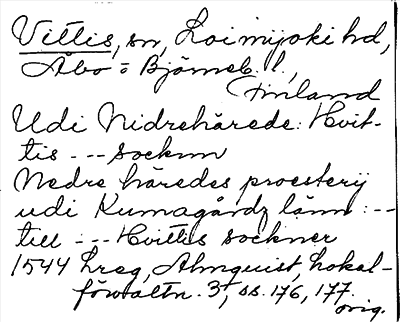 Vittis, sn, Loimijoki hd,
Åbo o Björneb. l.,
Finland
Udi Nidrehärede: Hvit-
tis --- socknn
Nedre häredes proesterij
udi Kumagårdz länn: --
till --- Hvittis sockner
1544 Lreg, Almquist, Lokal-
förvaltn. 3, ss. 176, 177.
orig.